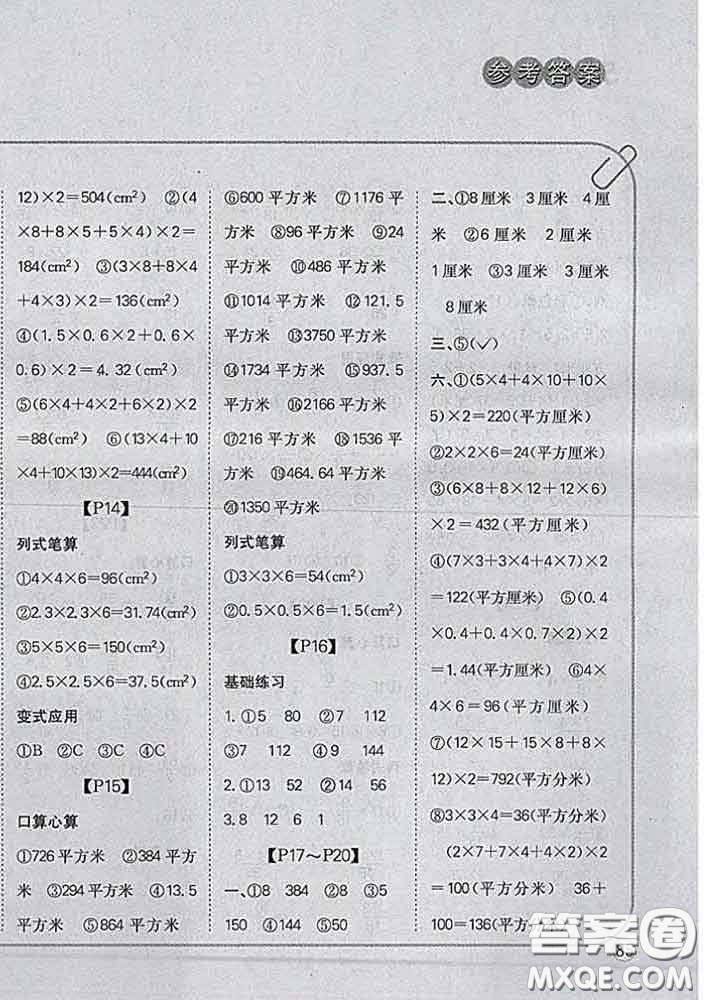 参考答案
12)×2=504(cm²) ②(4
×8+8×5+5×4)×2=
184(cm²) ③(3×8+8×4
+4×3)×2=136(cm²)
④(1.5×0.6×2+0.6×
0.6)×2=4.32(cm²)
⑤(6×4+4×2+6×2)×2
=88(cm²) ⑥(13×4+10
×4+10×13)×2=444(cm²)
【P14】
列式笔算
①4×4×6=96(cm²)
②2.3×2.3×6=31.74(cm²)
③5×5×6=150(cm²)
④2.5×2.5×6=37.5(cm²)
变式应用
①B ②C ③C ④C
【P15】
口算心算
①726平方米 ②384平方
米 ③294平方米 ④13.5
平方米 ⑤864平方米
⑥600平方米 ⑦1176平
方米 ⑧96平方米 ⑨24
平方米 ⑩486平方米
⑪1014平方米 ⑫121.5
平方米 ⑬3750平方米
⑭1734平方米 ⑮937.5
平方米 ⑯2166平方米
⑰216平方米 ⑱1536平
方米 ⑲464.64平方米
⑳1350平方米
列式笔算
①3×3×6=54(cm²)
②0.5×0.5×6=1.5(cm²)
【P16】
基础练习
1.①5 80 ②7 112
③7 112 ④9 144
2.①13 52 ②14 56
3.8 12 6 1
【P17～P20】
一、①8 384 ②8 ③5
150 ④144 ⑤50
二、①8厘米 3厘米 4厘
米 ②6厘米 2厘米
1厘米 ③3厘米 3厘米
8厘米
三、⑤(✓)
六、①(5×4+4×10+10×
5)×2=220(平方厘米)
②2×2×6=24(平方厘米)
③(6×8+8×12+12×6)
×2=432(平方厘米)
④(7×3+3×4+4×7)×2
=122(平方厘米) ⑤(0.4
×0.4+0.4×0.7+0.4×0.7)×2
=1.44(平方厘米) ⑥4×
4×6=96(平方厘米)
⑦(12×15+15×8+8×
12)×2=792(平方分米)
⑧3×3×4=36(平方分米)
(2×7+7×2+4×2×2)×2
=100(平方分米) 36+
100=136(平方分米)
答案圈
MXQE.COM